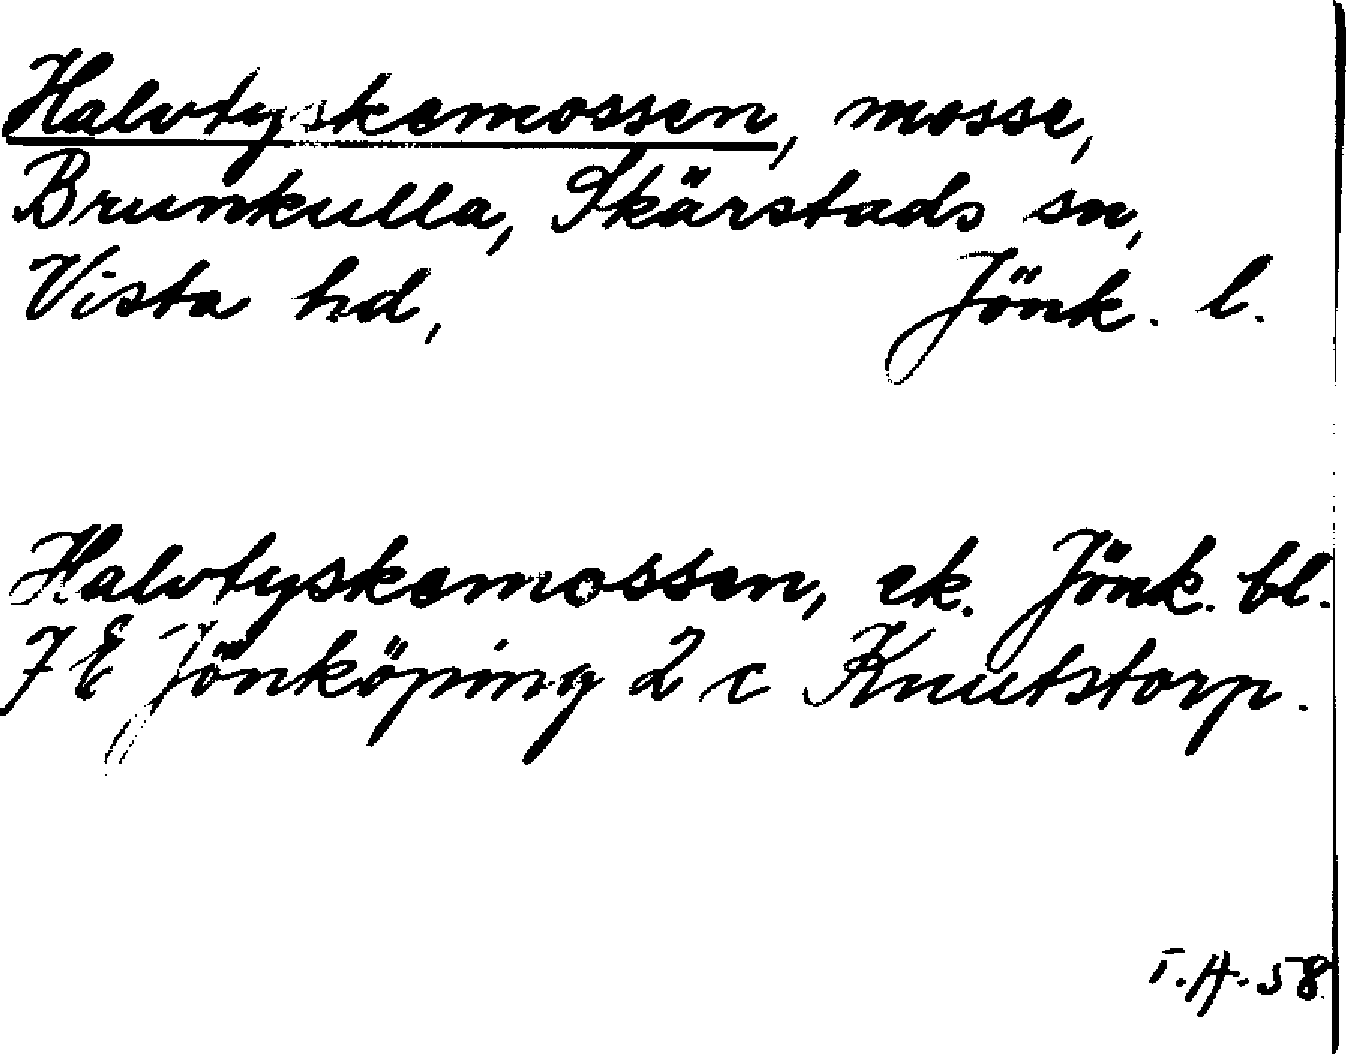 Halvtyskemossen, mosse,
Brunkulla, Skärstads sn,
Vista hd, Jönk. l.
Halvtyskemossen, ek. Jönk. bl.
7 E Jönköping 2 c Knutstorp.
T.H. 58